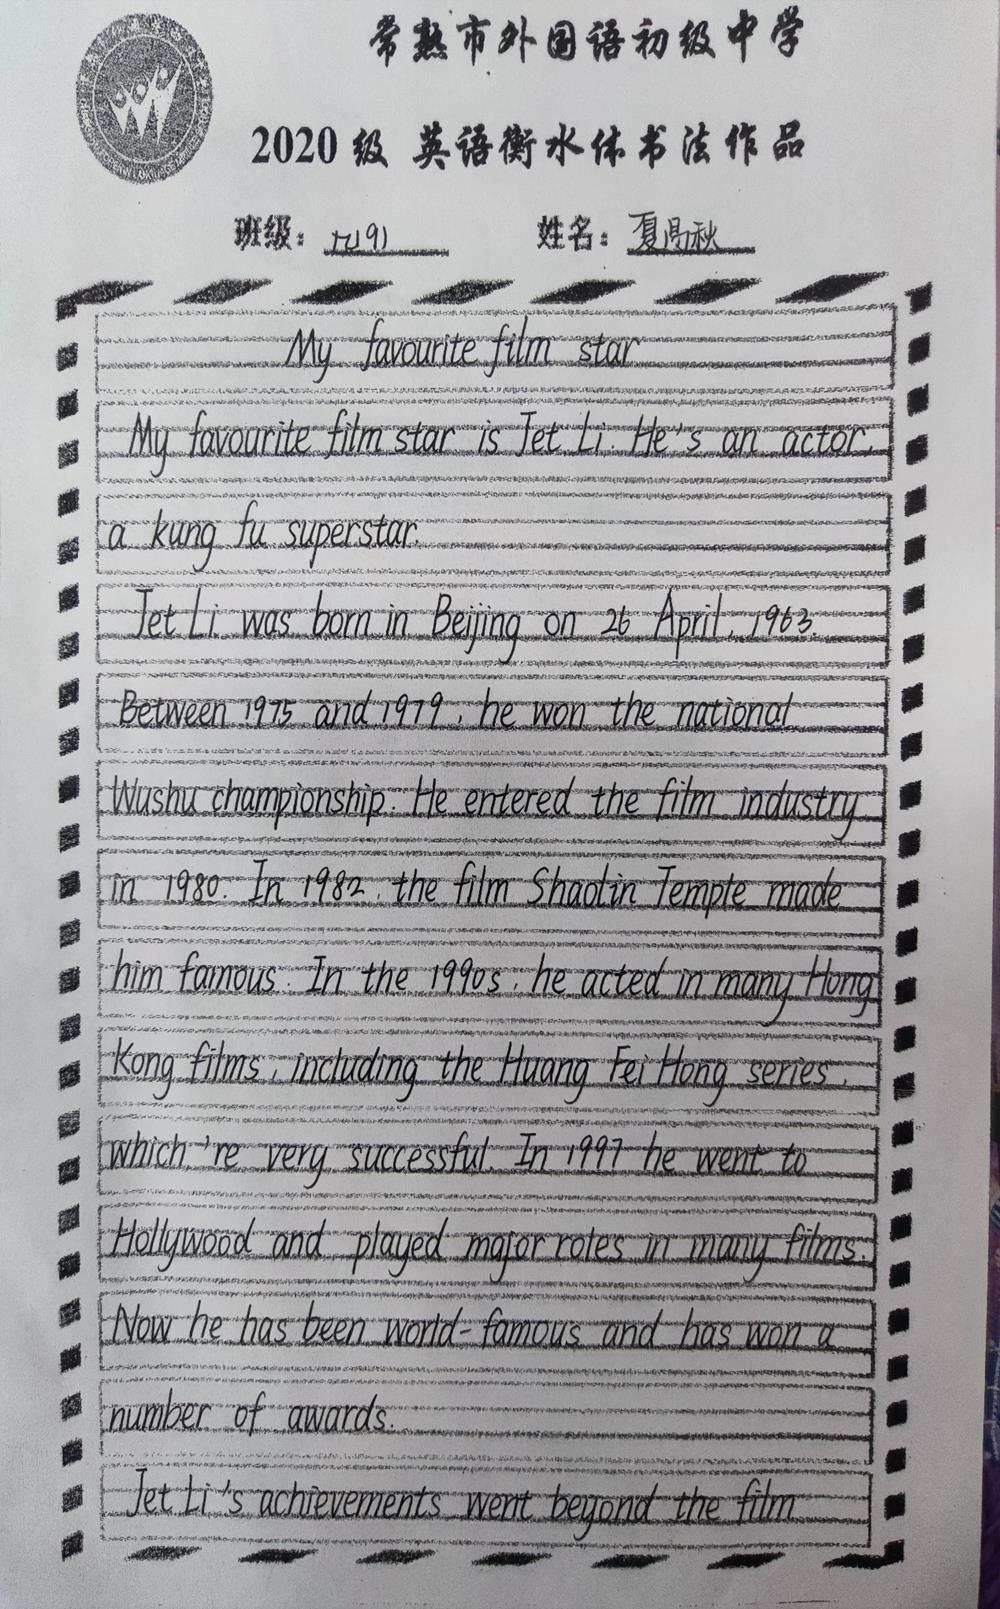 常熟市外国语初级中学
2020级 英语衡水体书法作品
班级： 姓名：
My favourite film star
My favourite film star is Jet Li. He's an actor,
a kung fu superstar.
Jet Li was born in Beijing on 26 April, 1963.
Between 1975 and 1979, he won the national
Wushu championship. He entered the film industry
in 1980. In 1982, the film Shaolin Temple made
him famous. In the 1990s, he acted in many Hong
Kong films, including the Huang Fei Hong series,
which 're very successful. In 1997 he went to
Hollywood and played major roles in many films.
Now he has been world-famous and has won a
number of awards.
Jet Li's achievements went beyond the film